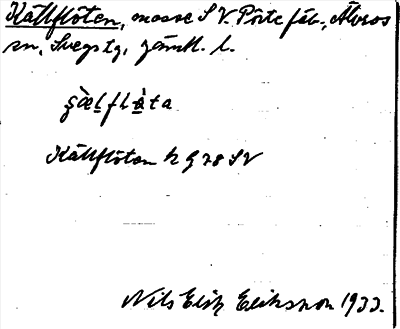 Källflöten, mosse S V. Pörte fäb., Älvros
sn, Svegs tg, Jämtl. l.
Källflöten h g 78 SV
Nils Erik Eriksson 1933.